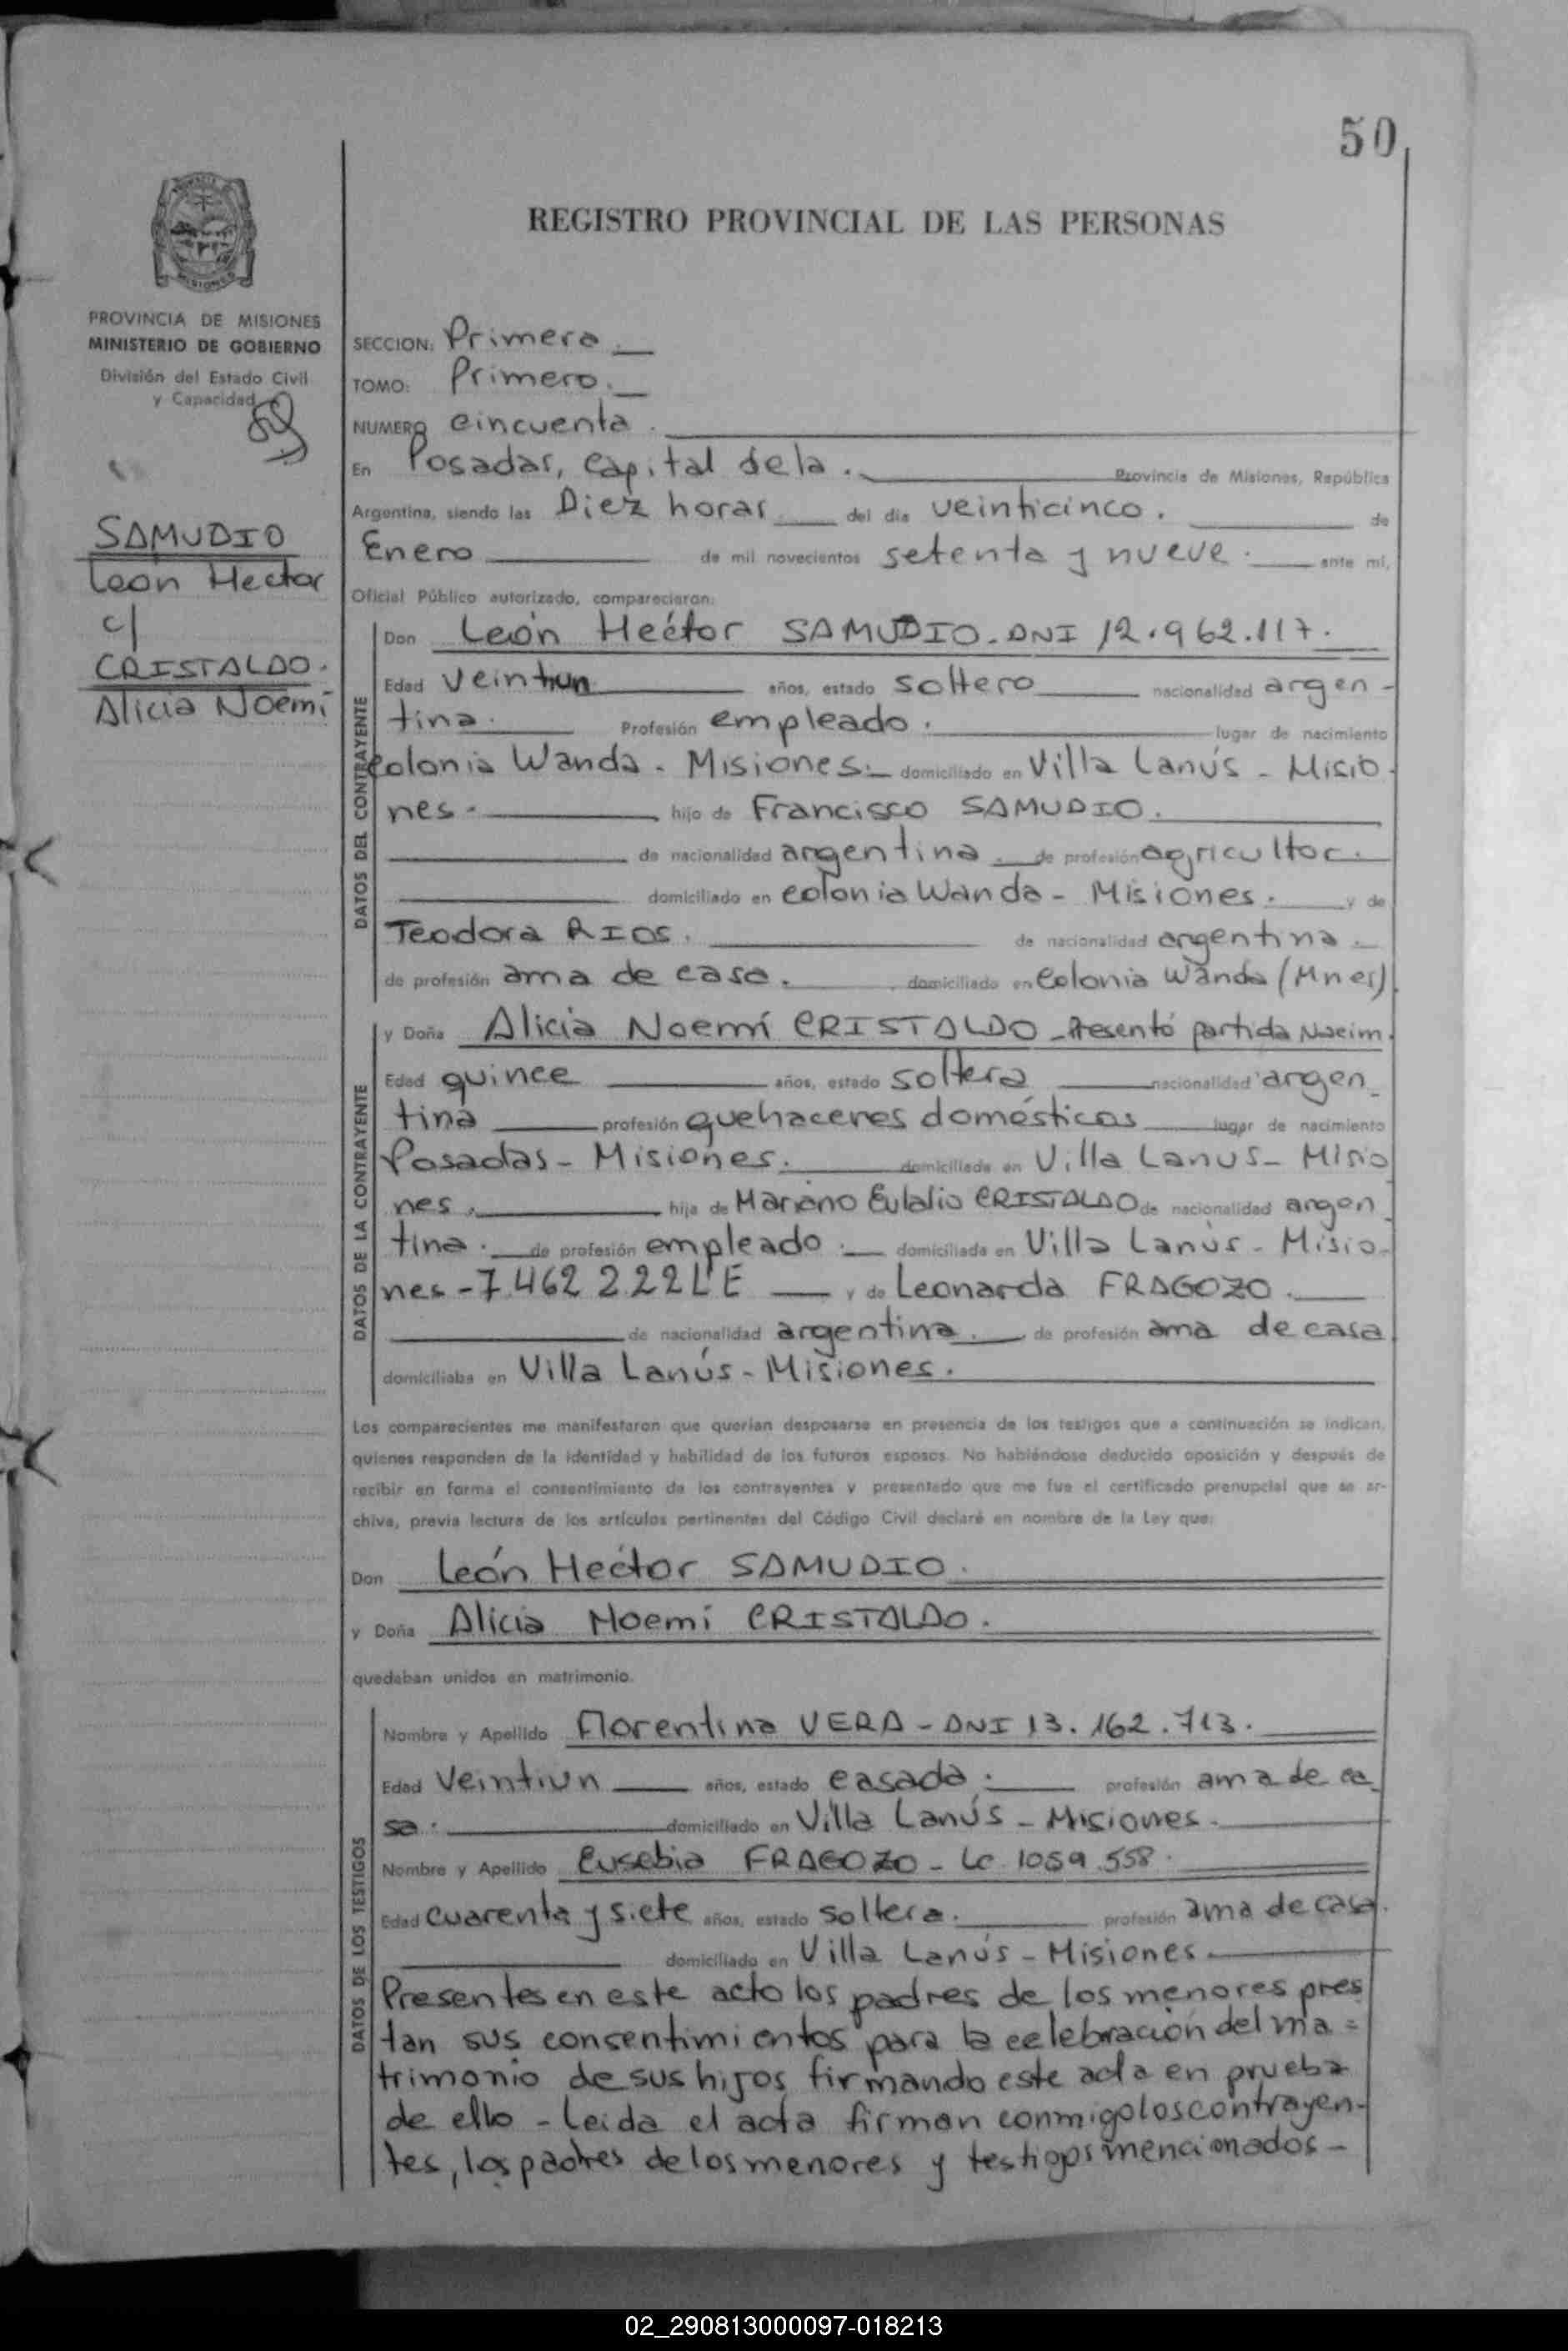 50
PROVINCIA DE MISIONES
MINISTERIO DE GOBIERNO
División del Estado Civil
y Capacidad
SAMUDIO
León Hector
c/
CRISTALDO.
Alicia Noemí
REGISTRO PROVINCIAL DE LAS PERSONAS
SECCION: Primera.
TOMO: Primero.
NUMERO cincuenta.
En Posadas, Capital de la. Provincia de Misiones, República
Argentina, siendo las Diez horas del día veinticinco. de
Enero de mil novecientos setenta y nueve. ante mí,
Oficial Público autorizado, comparecieron:
DATOS DEL CONTRAYENTE
Don León Héctor SAMUDIO-DNI 12.962.117.
Edad veintiun años, estado soltero nacionalidad argen-
tina. Profesión empleado. lugar de nacimiento
colonia Wanda. Misiones. domiciliado en Villa Lanús - Misio-
nes. hijo de Francisco SAMUDIO.
de nacionalidad argentina. de profesión agricultor.
domiciliado en colonia Wanda - Misiones. y de
Teodora RIOS. de nacionalidad argentina.
de profesión ama de casa. domiciliado en Colonia Wanda (Mnes).
DATOS DE LA CONTRAYENTE
y Doña Alicia Noemí CRISTALDO - Presentó partida Nacim.
Edad quince años, estado soltera nacionalidad argen-
tina profesión quehaceres domésticos lugar de nacimiento
Posadas - Misiones. domiciliada en Villa Lanus - Misio
nes. hija de Mariano Eulalio CRISTALDO de nacionalidad argen-
tina. de profesión empleado. domiciliado en Villa Lanús - Misio-
nes - 7.462 222 LE y de Leonarda FRAGOZO.
de nacionalidad argentina. de profesión ama de casa
domiciliaba en Villa Lanús - Misiones.
Los comparecientes me manifestaron que querían desposarse en presencia de los testigos que a continuación se indican,
quienes responden de la identidad y habilidad de los futuros esposos. No habiéndose deducido oposición y después de
recibir en forma el consentimiento de los contrayentes y presentado que me fue el certificado prenupcial que se ar-
chiva, previa lectura de los artículos pertinentes del Código Civil declaré en nombre de la Ley que:
Don León Hector SAMUDIO.
y Doña Alicia Noemí CRISTALDO.
quedaban unidos en matrimonio.
DATOS DE LOS TESTIGOS
Nombre y Apellido Florentina VERA - DNI 13.162.713.
Edad Veintiun años, estado casada. profesión ama de ca-
sa. domiciliado en Villa Lanús - Misiones.
Nombre y Apellido Eusebia FRAGOZO - LC 1059.558.
Edad cuarenta y siete años, estado soltera. profesión ama de casa.
domiciliado en Villa Lanús - Misiones.
Presentes en este acto los padres de los menores pres
tan sus consentimientos para la celebración del ma =
trimonio de sus hijos firmando este acta en prueba
de ello - Leida el acta firman conmigo los contrayen-
tes, los padres de los menores y testigos mencionados -
02_290813000097-018213